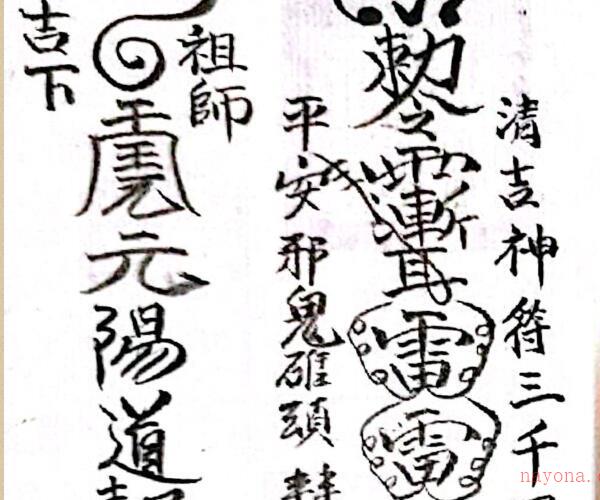 清吉神符三千
敕令
雷雷
平安邪鬼碓頭
祖師
元陽道
吉下
nayona.